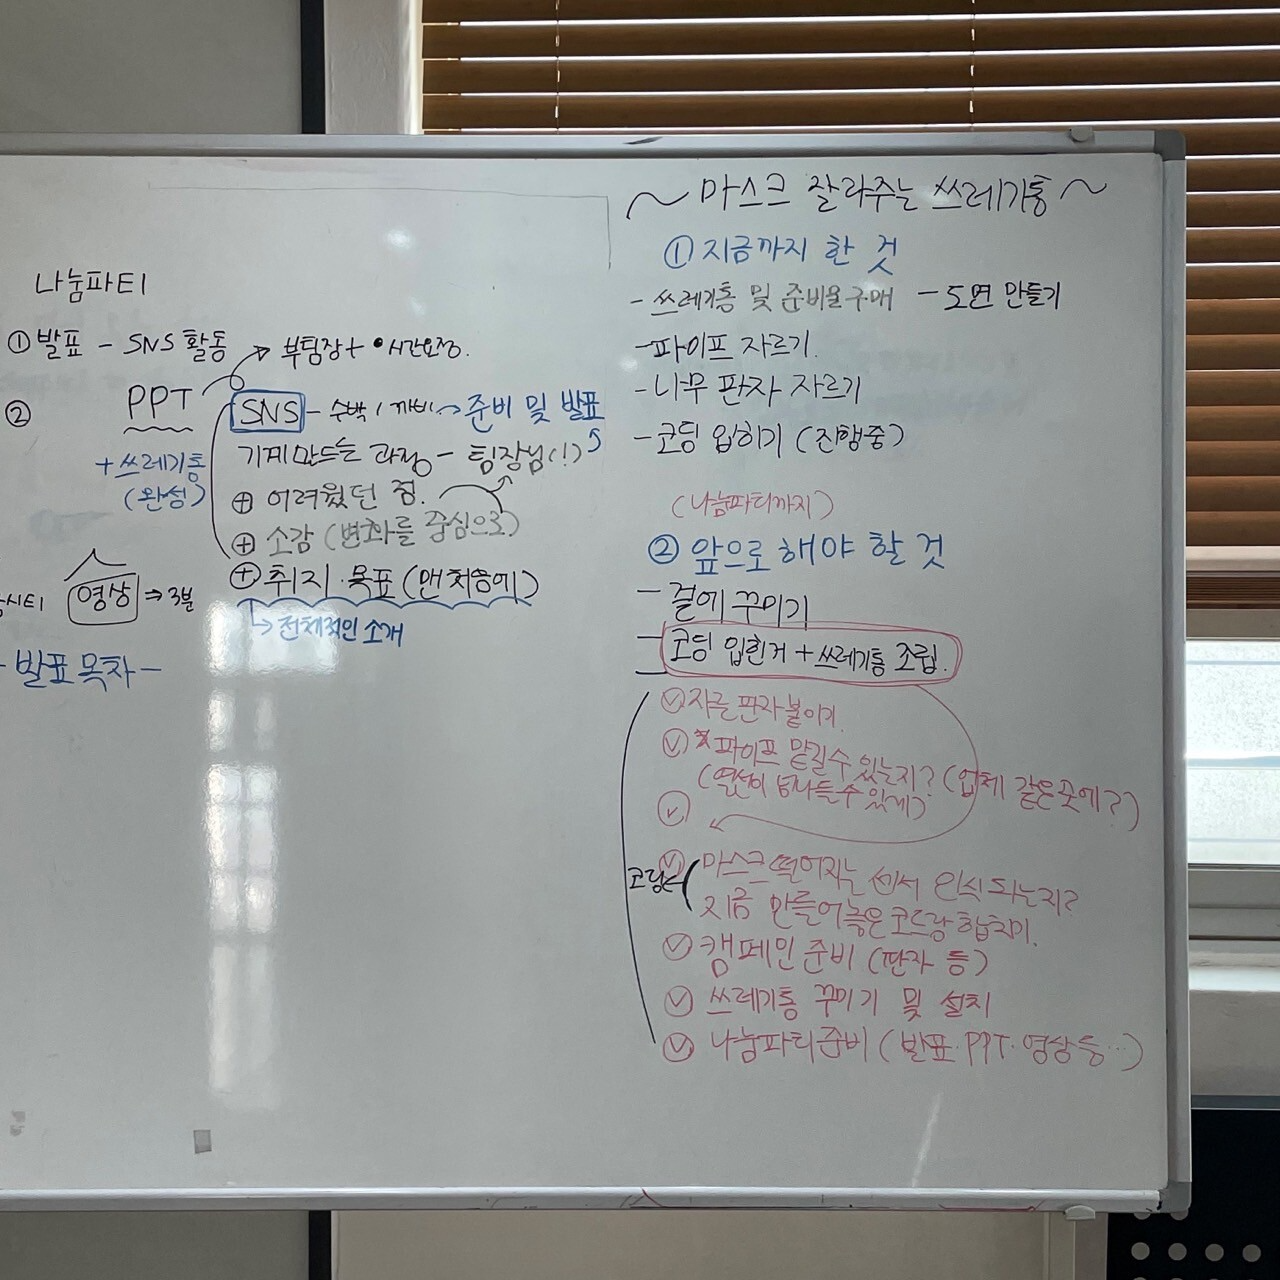 나눔파티
① 발표 - SNS 활동
→ 부팀장 + • 시간요정.
② PPT
+ 쓰레기통
(완성)
SNS - 수박 / 까비 → 준비 및 발표
기계 만드는 과정 - 팀장님(!)
⊕ 어려웠던 점.
⊕ 소감 (변화를 중심으로)
⊕ 취지·목표 (맨 처음에)
↳ 전체적인 소개
영상 ⇒ 3분
- 발표 목차 -
~ 마스크 잘라주는 쓰레기통 ~
① 지금까지 한 것
- 쓰레기통 및 준비물 구매 - 도면 만들기
- 파이프 자르기.
- 나무 판자 자르기
- 코딩 입히기 (진행중)
(나눔파티까지)
② 앞으로 해야 할 것
- 겉에 꾸미기
- 코딩 입힌거 + 쓰레기통 조립.
✓ 자른 판자 붙이기.
✓ * 파이프 맡길수 있는지? (업체 같은곳에?)
(열선이 넘나들수 있게)
✓
코딩 ✓ 마스크 떨어지는 센서 인식 되는지?
지금 만들어놓은 코드랑 합치기.
✓ 캠페인 준비 (판자 등)
✓ 쓰레기통 꾸미기 및 설치
✓ 나눔파티 준비 (발표·PPT·영상 등…)